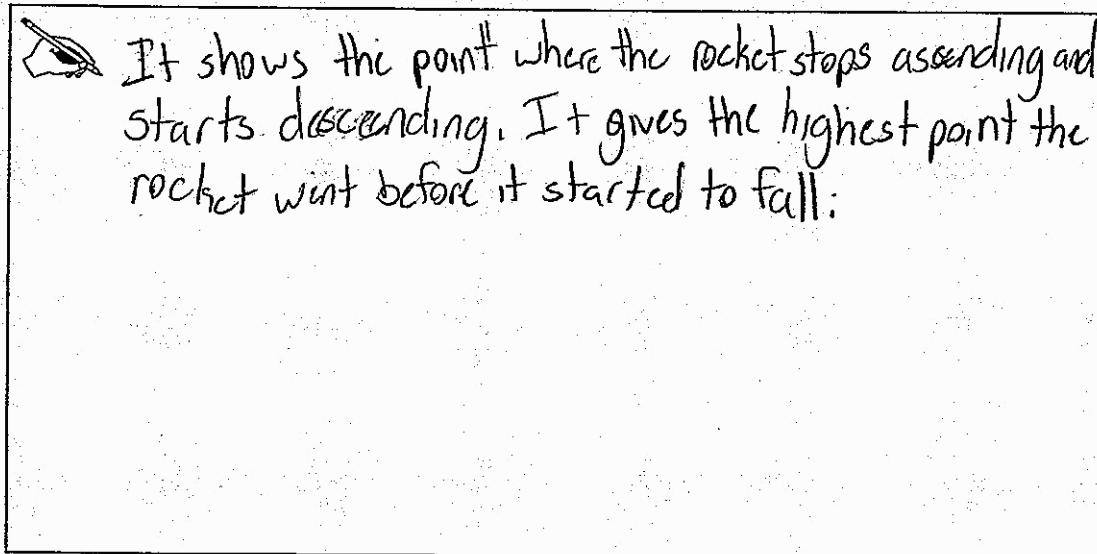 It shows the point where the rocket stops ascending and
starts descending. It gives the highest point the
rocket went before it started to fall.